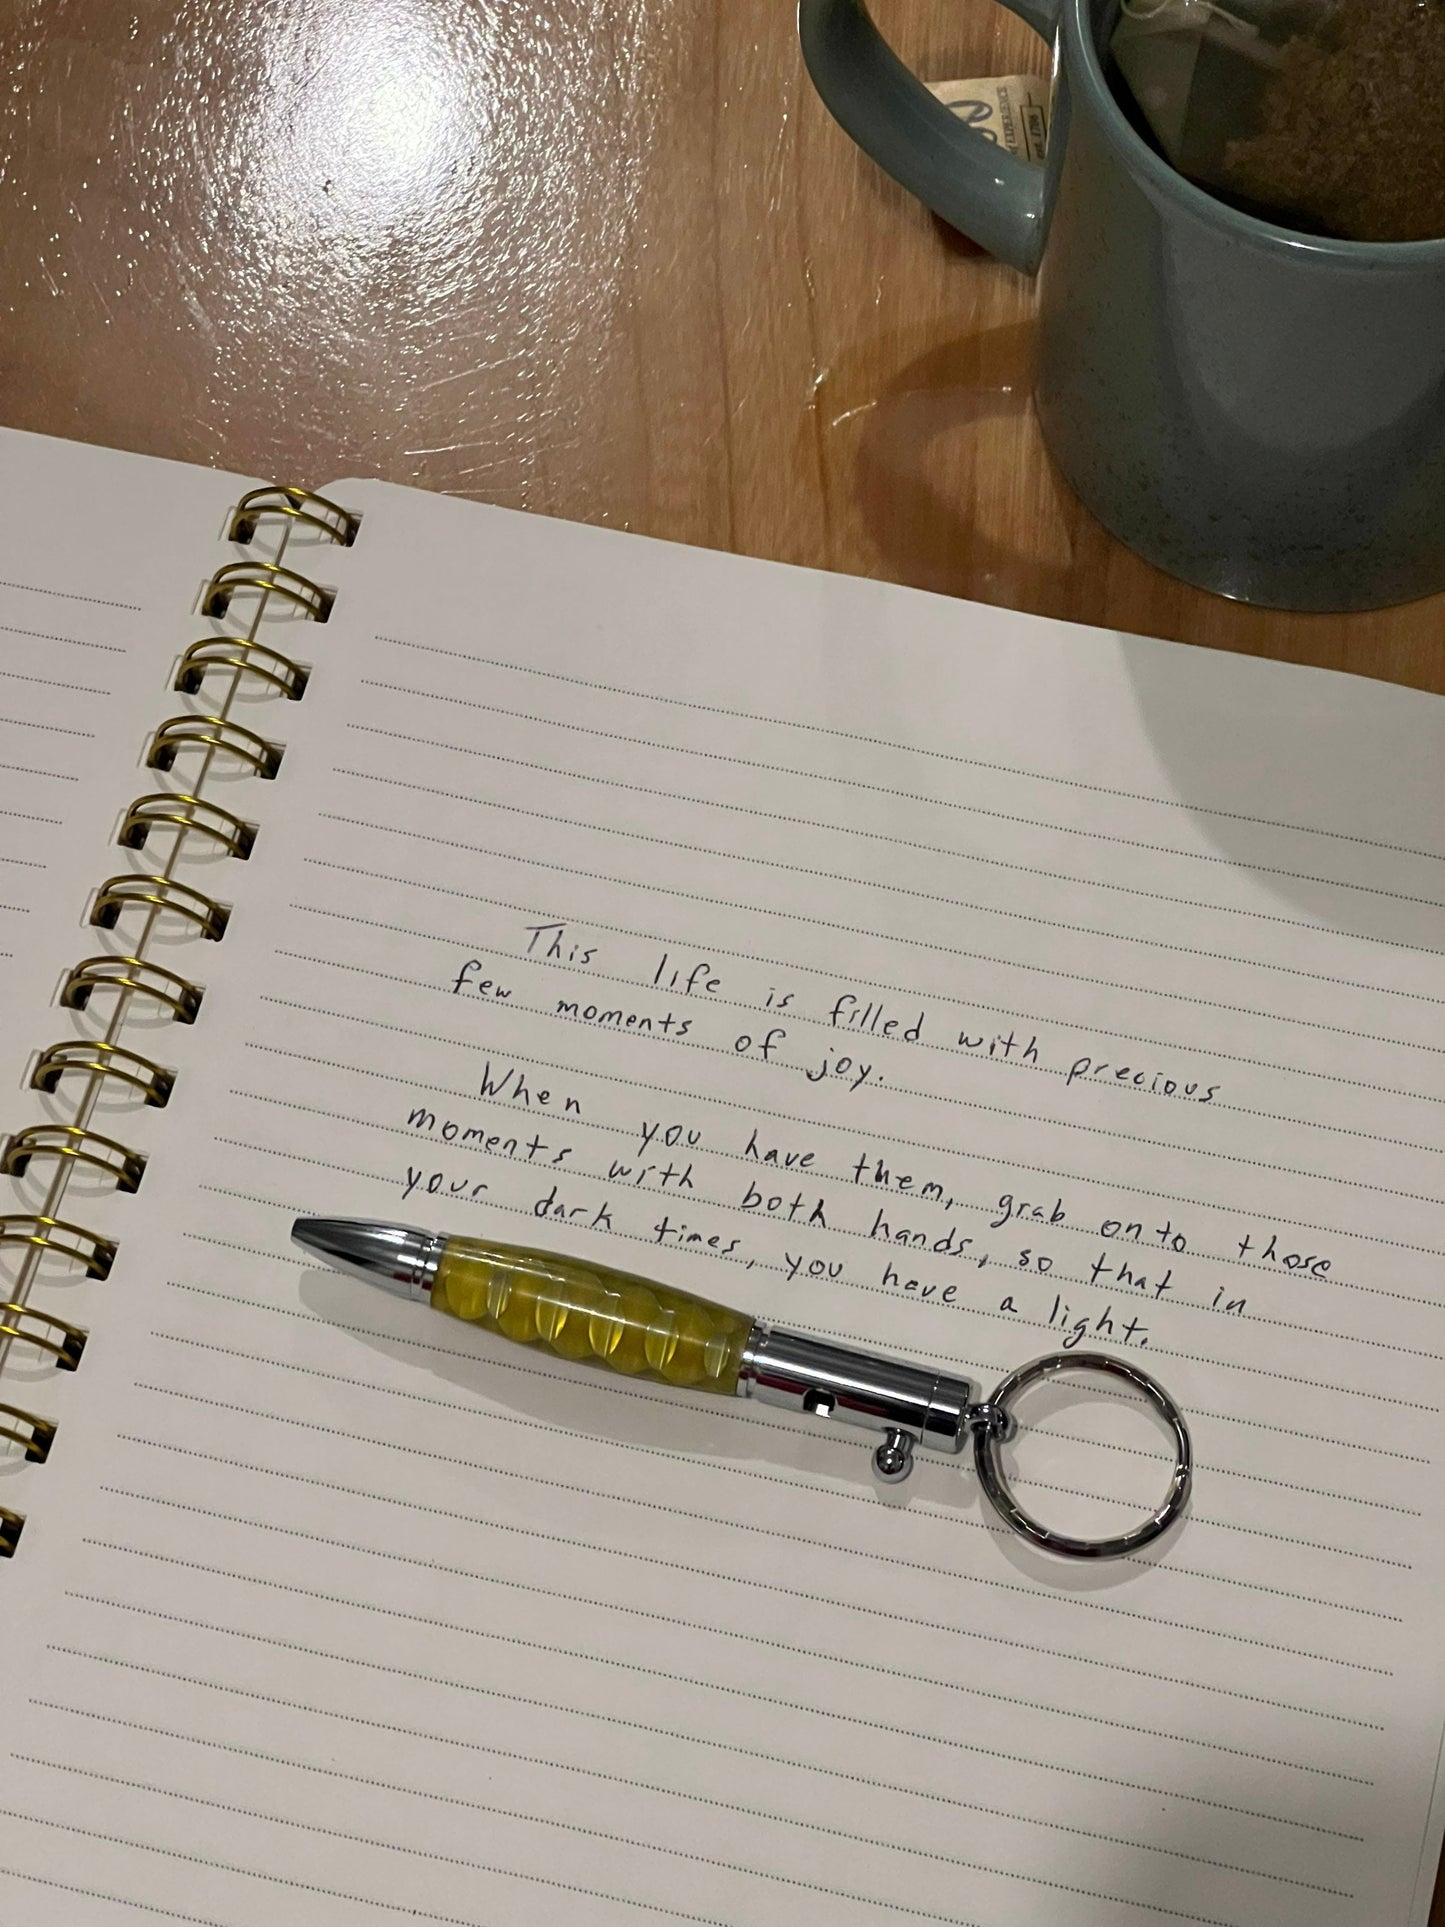 EXPERIENCE
1706
This life is filled with precious
few moments of joy.
When you have them, grab onto those
moments with both hands, so that in
your dark times, you have a light.